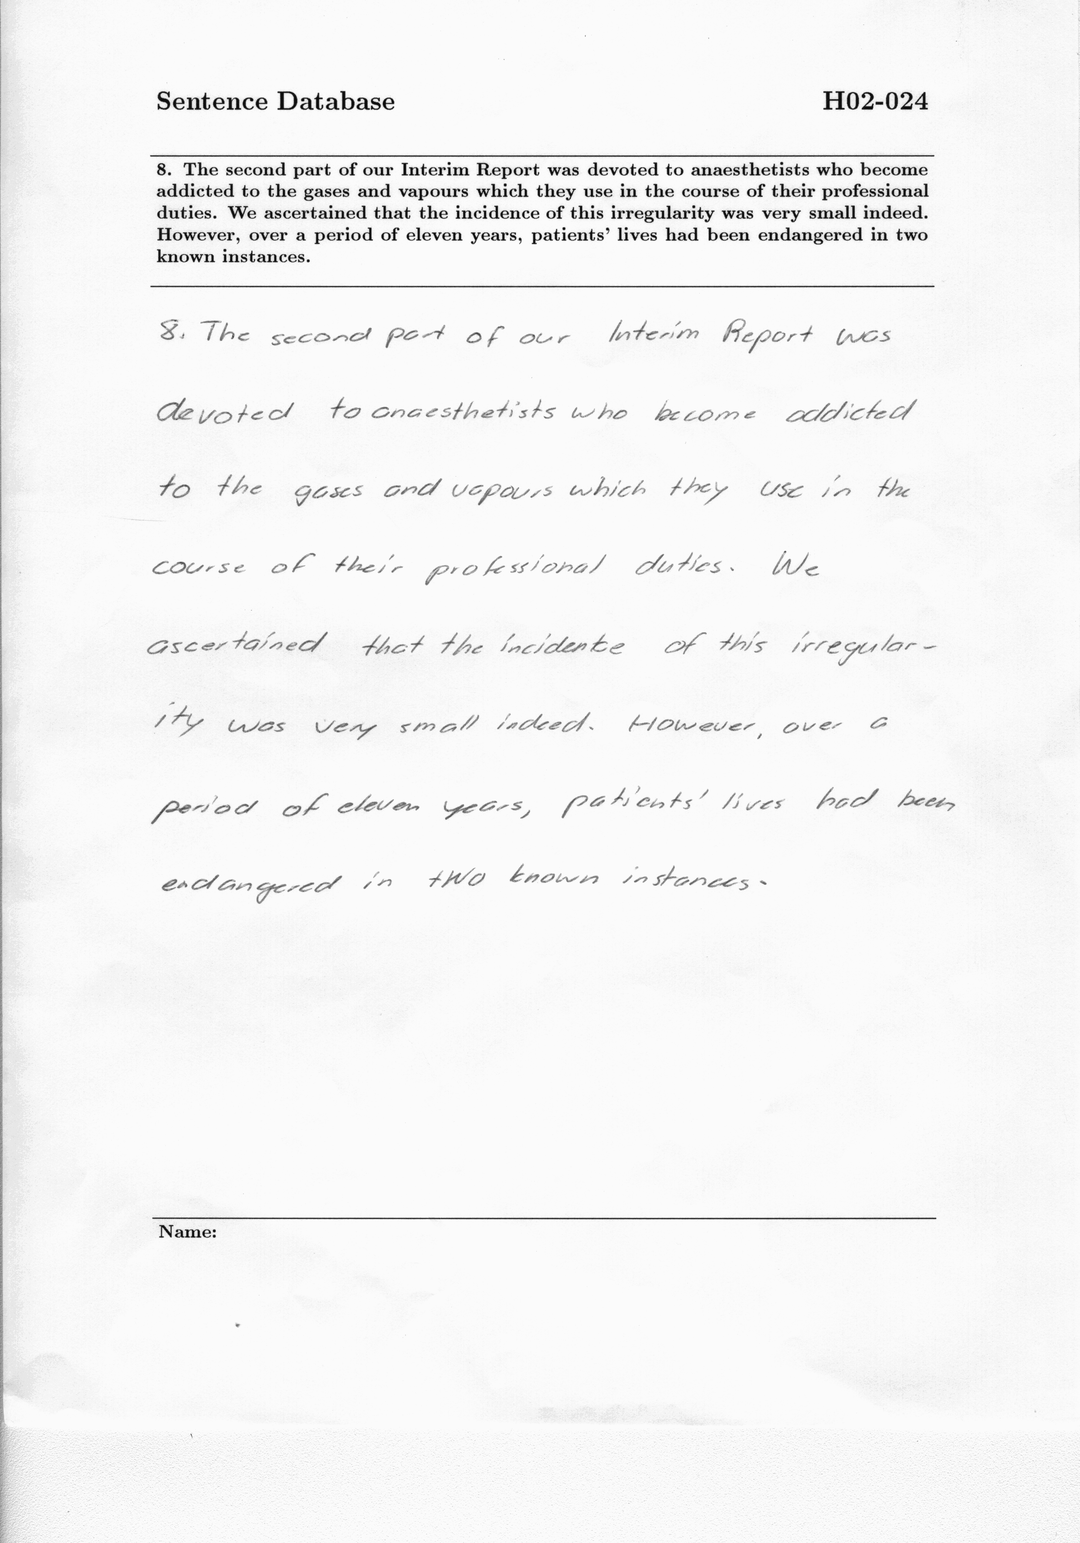 Sentence Database H02-024
8. The second part of our Interim Report was devoted to anaesthetists who become
addicted to the gases and vapours which they use in the course of their professional
duties. We ascertained that the incidence of this irregularity was very small indeed.
However, over a period of eleven years, patients' lives had been endangered in two
known instances.
8. The second part of our Interim Report was
devoted to anaesthetists who become addicted
to the gases and vapours which they use in the
course of their professional duties. We
ascertained that the incidence of this irregular-
ity was very small indeed. However, over a
period of eleven years, patients' lives had been
endangered in two known instances.
Name: